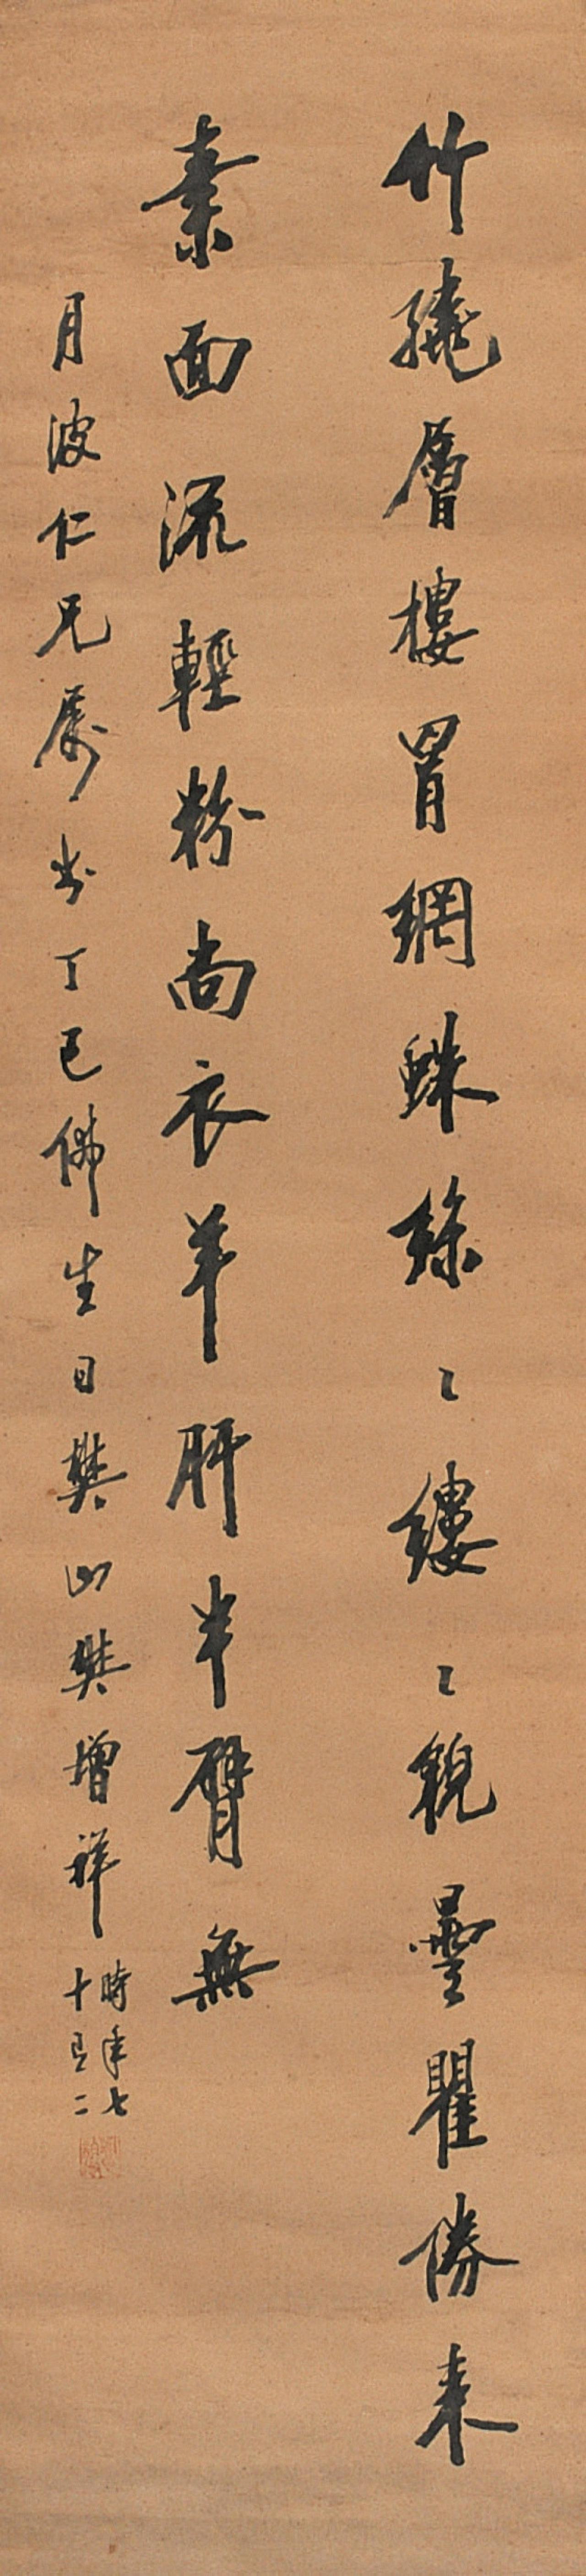 竹繞層樓罥網蛛絲〻縷〻貌曇瞿勝来
素面流輕粉尚衣羊肝半臂無
月波仁兄屬书丁巳佛生日樊山樊增祥
時年七
十有二